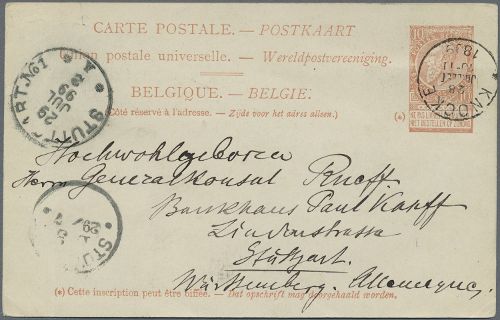 CARTE POSTALE. — POSTKAART
Union postale universelle. — Wereldpostvereeniging.
BELGIQUE. — BELGIË.
(Côté réservé à l'adresse. — Zijde voor het adres alleen.)
(*)
10
NE PAS LIV
NIET BESTELLEN OP ZONDAG
KNOCKE
1899
STUTTGART. No 1
29 JUL 99
STU
29/
Hochwohlgeboren
Herrn Generalkonsul Rueff
Bankhaus Paul Kapff
Lindenstrasse
Stuttgart.
Württemberg. Allemagne.
(*) Cette inscription peut être biffée. — Dat opschrift mag doorgehaald worden.